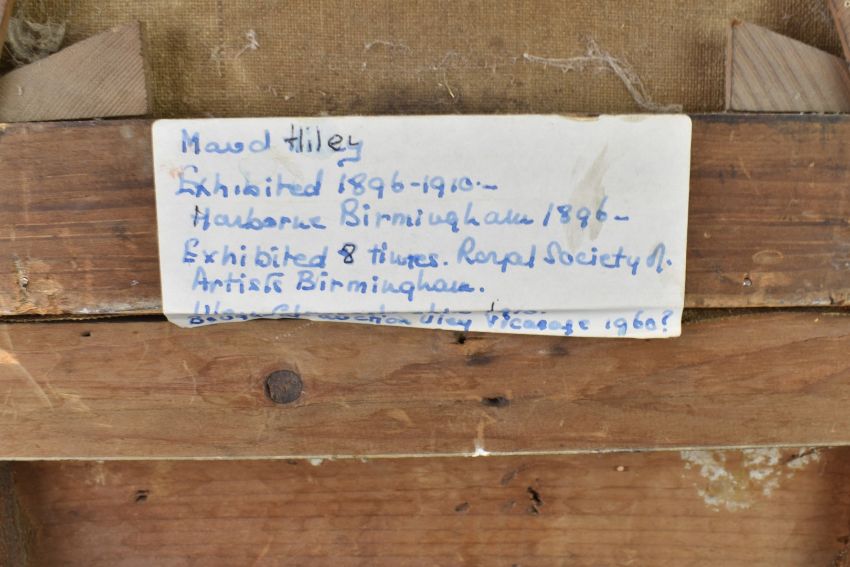 Maud Hiley
Exhibited 1896-1910.-
Harborne Birmingham 1896-
Exhibited 8 times. Royal Society of.
Artists Birmingham.
Uley Vicarage 1960?